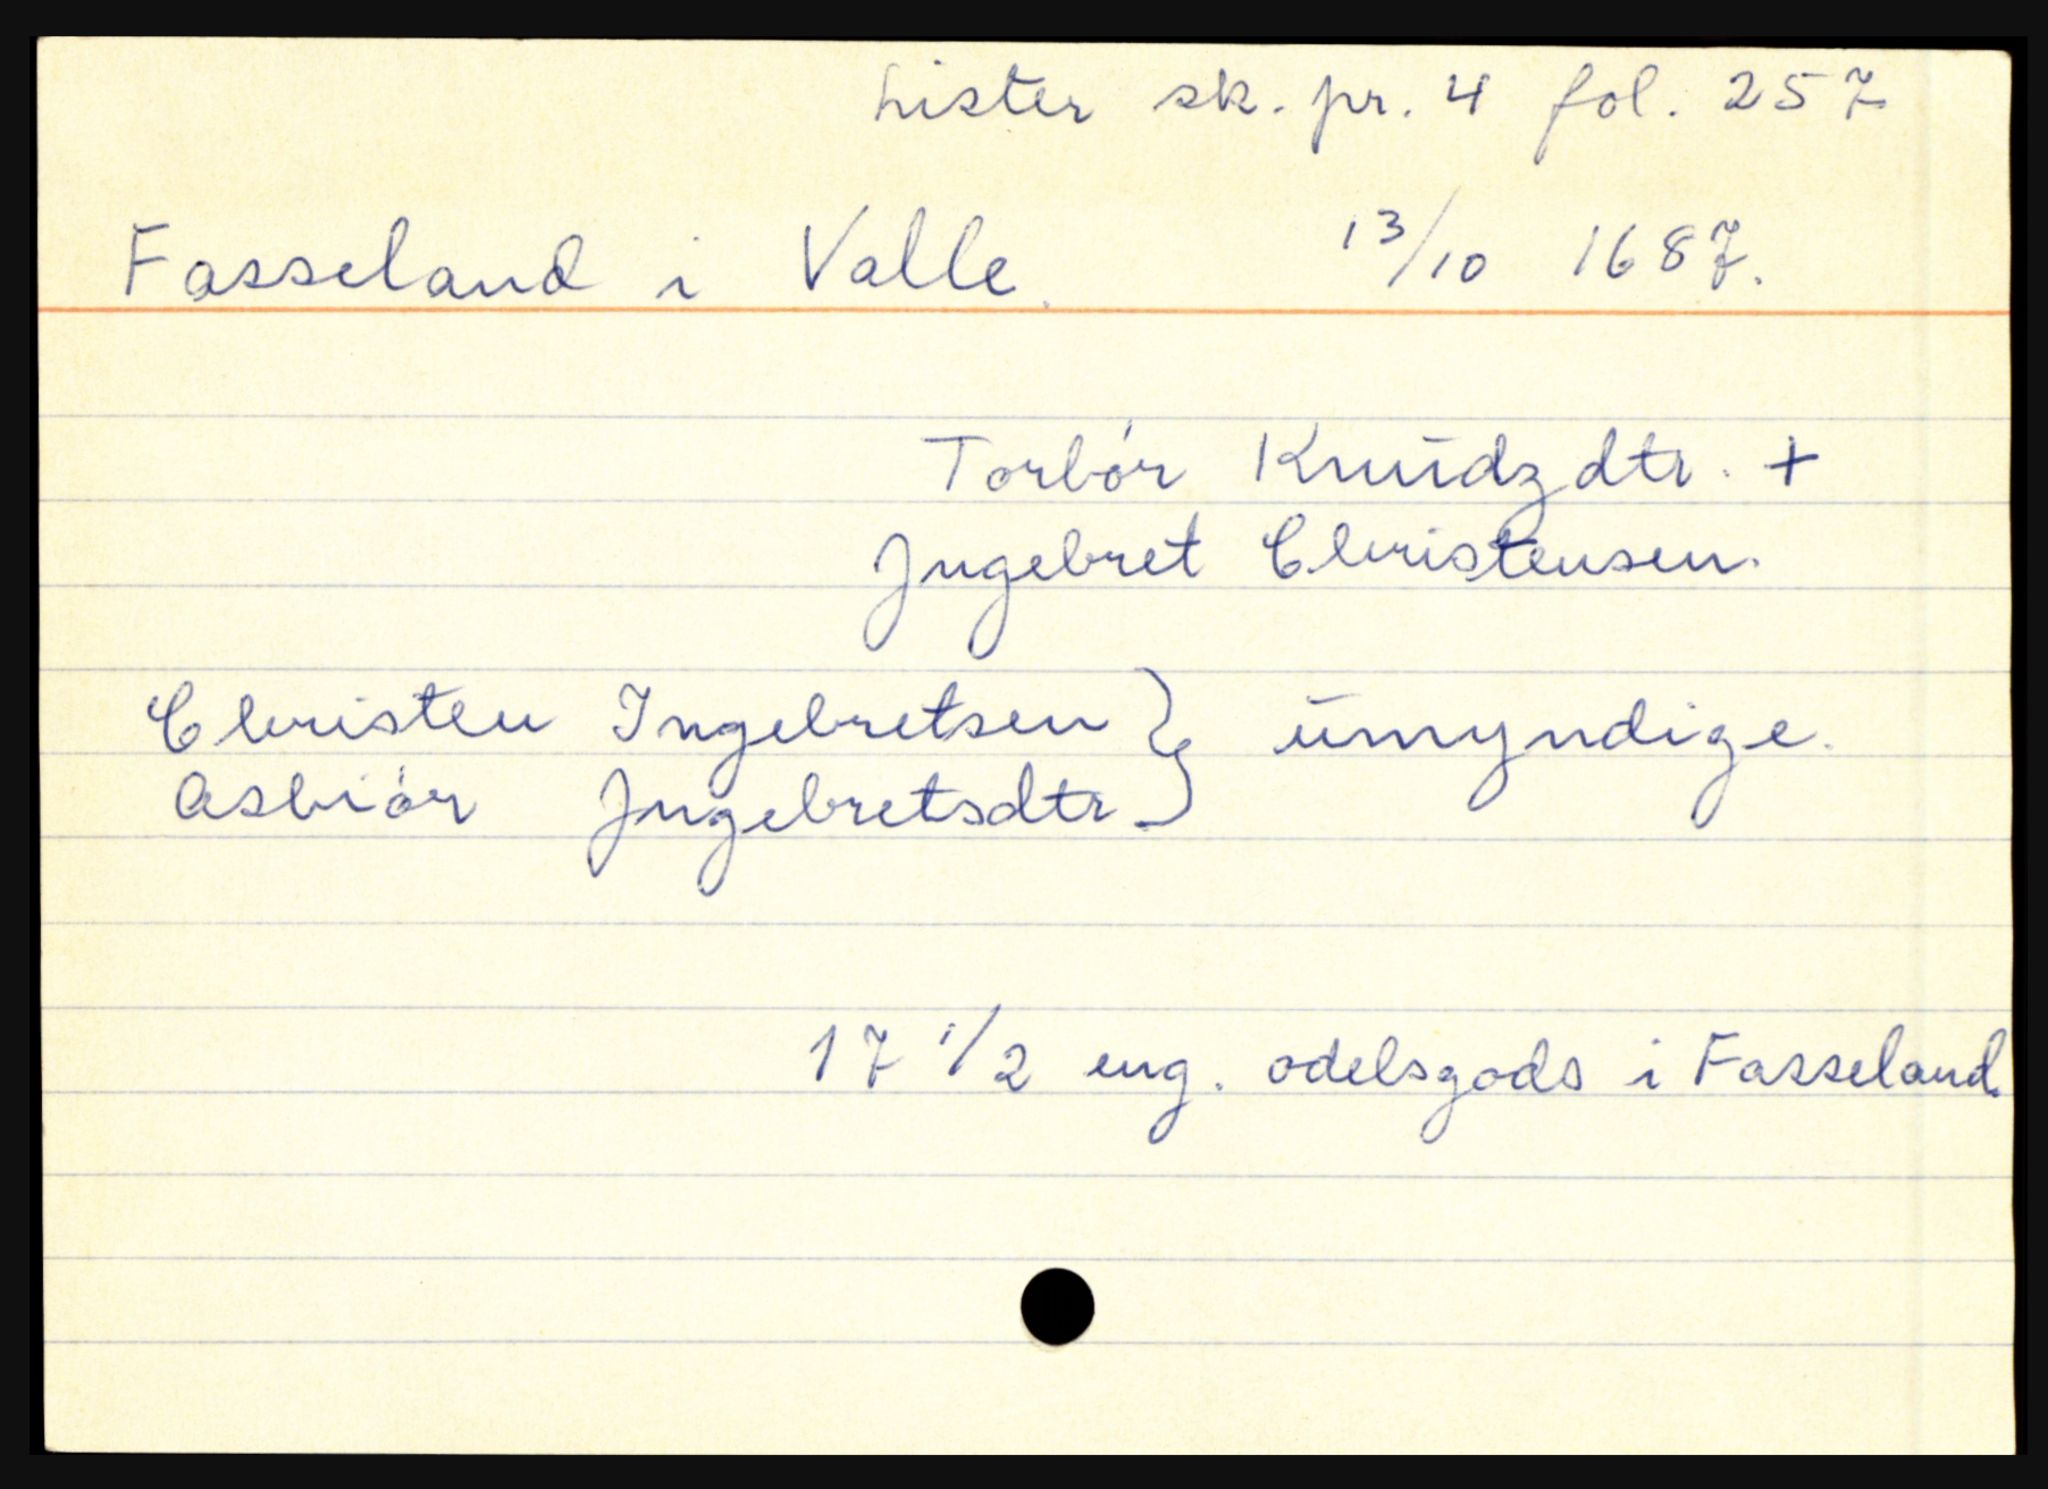 Lister sk. pr. 4 fol. 257
Fasseland i Valle. 13/10 1687.
Torbór Knudzdtr. +
Jngebret Christensen.
Christen Ingebretsen } umyndige.
Asbiór Jngebretsdtr. }
17 1/2 eng. odelsgods i Fasseland.